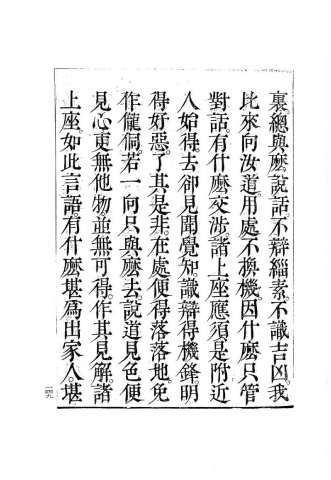 裏總與麽說話。不辯緇素。不識吉凶。我
比來向汝道。用處不換機。因什麽只管
對話。有什麽交涉。諸上座應須是附近
人始得去卻見聞覺知。識辯得機鋒。明
得好惡。了其是非。在處便得落落地。免
作儱侗。若一向只與麽去。說道見色便
見心。更無他物。並無可得。作其見解。諸
上座。如此言語。有什麽堪爲出家人。堪
一四九